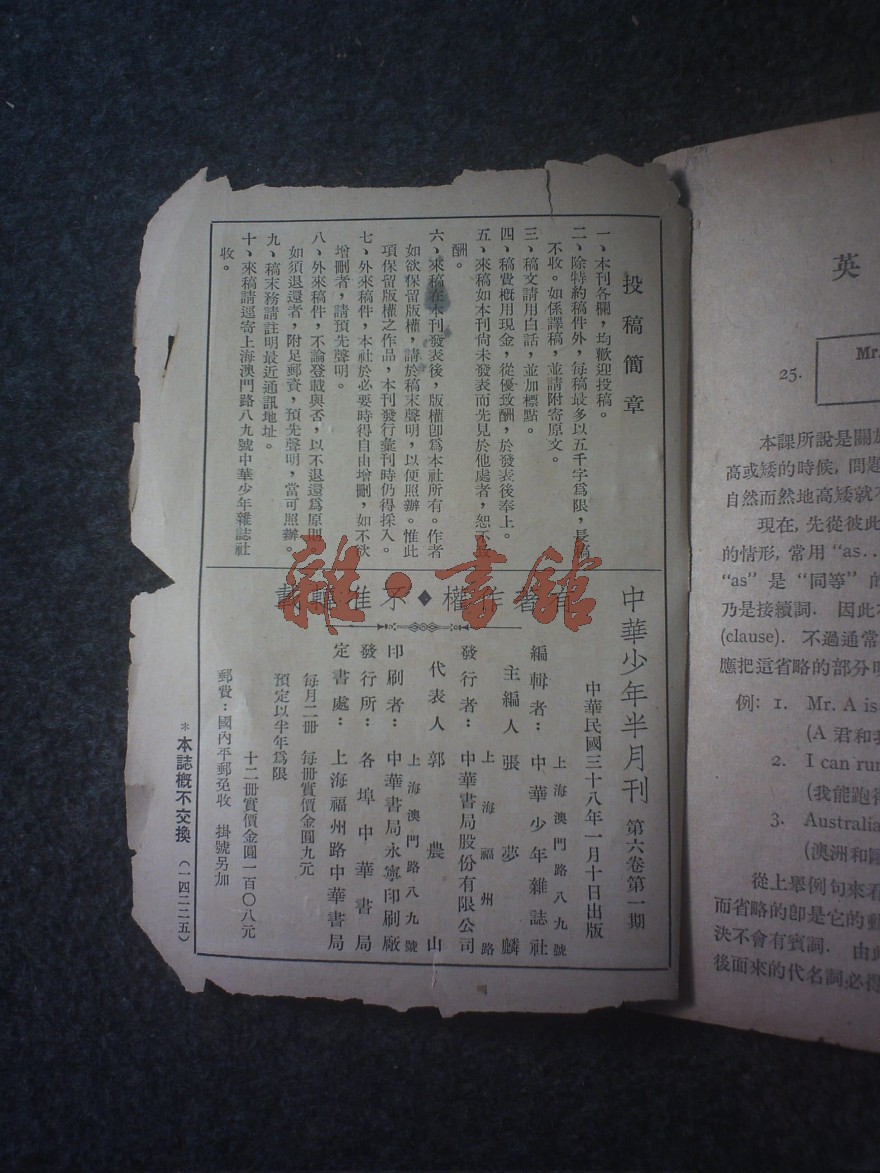 投稿簡章
一、本刊各欄，均歡迎投稿。
二、除特約稿件外，每稿最多以五千字爲限，長稿
不收。如係譯稿，並請附寄原文。
三、稿文請用白話，並加標點。
四、稿費概用現金，從優致酬，於發表後奉上。
五、來稿如本刊尙未發表而先見於他處者，恕不致
酬。
六、來稿在本刊發表後，版權卽爲本社所有。作者
如欲保留版權，請於稿末聲明，以便照辦。惟此
項保留版權之作品，本刊發行彙刊時仍得採入。
七、外來稿件，本社於必要時得自由增刪，如不欲
增刪者，請預先聲明。
八、外來稿件，不論登載與否，以不退還爲原則
如須退還者，附足郵資，預先聲明，當可照辦。
九、稿末務請註明最近通訊地址。
十、來稿請逕寄上海澳門路八九號中華少年雜誌社
收。
中華少年半月刊 第六卷第一期
中華民國三十八年一月十日出版
有著作權◆不准轉載
上海澳門路八九號
編輯者：中華少年雜誌社
主編人 張夢麟
上海福州路
發行者：中華書局股份有限公司
代表人 郭農山
上海澳門路八九號
印刷者：中華書局永寧印刷廠
發行所：各埠中華書局
定書處：上海福州路中華書局
每月二冊 每冊實價金圓九元
預定以半年爲限
十二冊實價金圓一百〇八元
郵費：國內平郵免收 掛號另加
*本誌概不交換（一四二二五）
雜·書館
英
25. Mr.
本課所說是關於
高或矮的時候，問題
自然而然地高矮就不
現在，先從彼此
的情形，常用 “as..
“as” 是 “同等” 的
乃是接續詞． 因此
(clause)． 不過通常
應把這省略的部分
例： 1. Mr. A is
(A 君和我
2. I can run
(我能跑得
3. Australia
(澳洲和
從上舉例句來看
而省略的卽是它的動
決不會有賓詞． 由此
後面來的代名詞必得